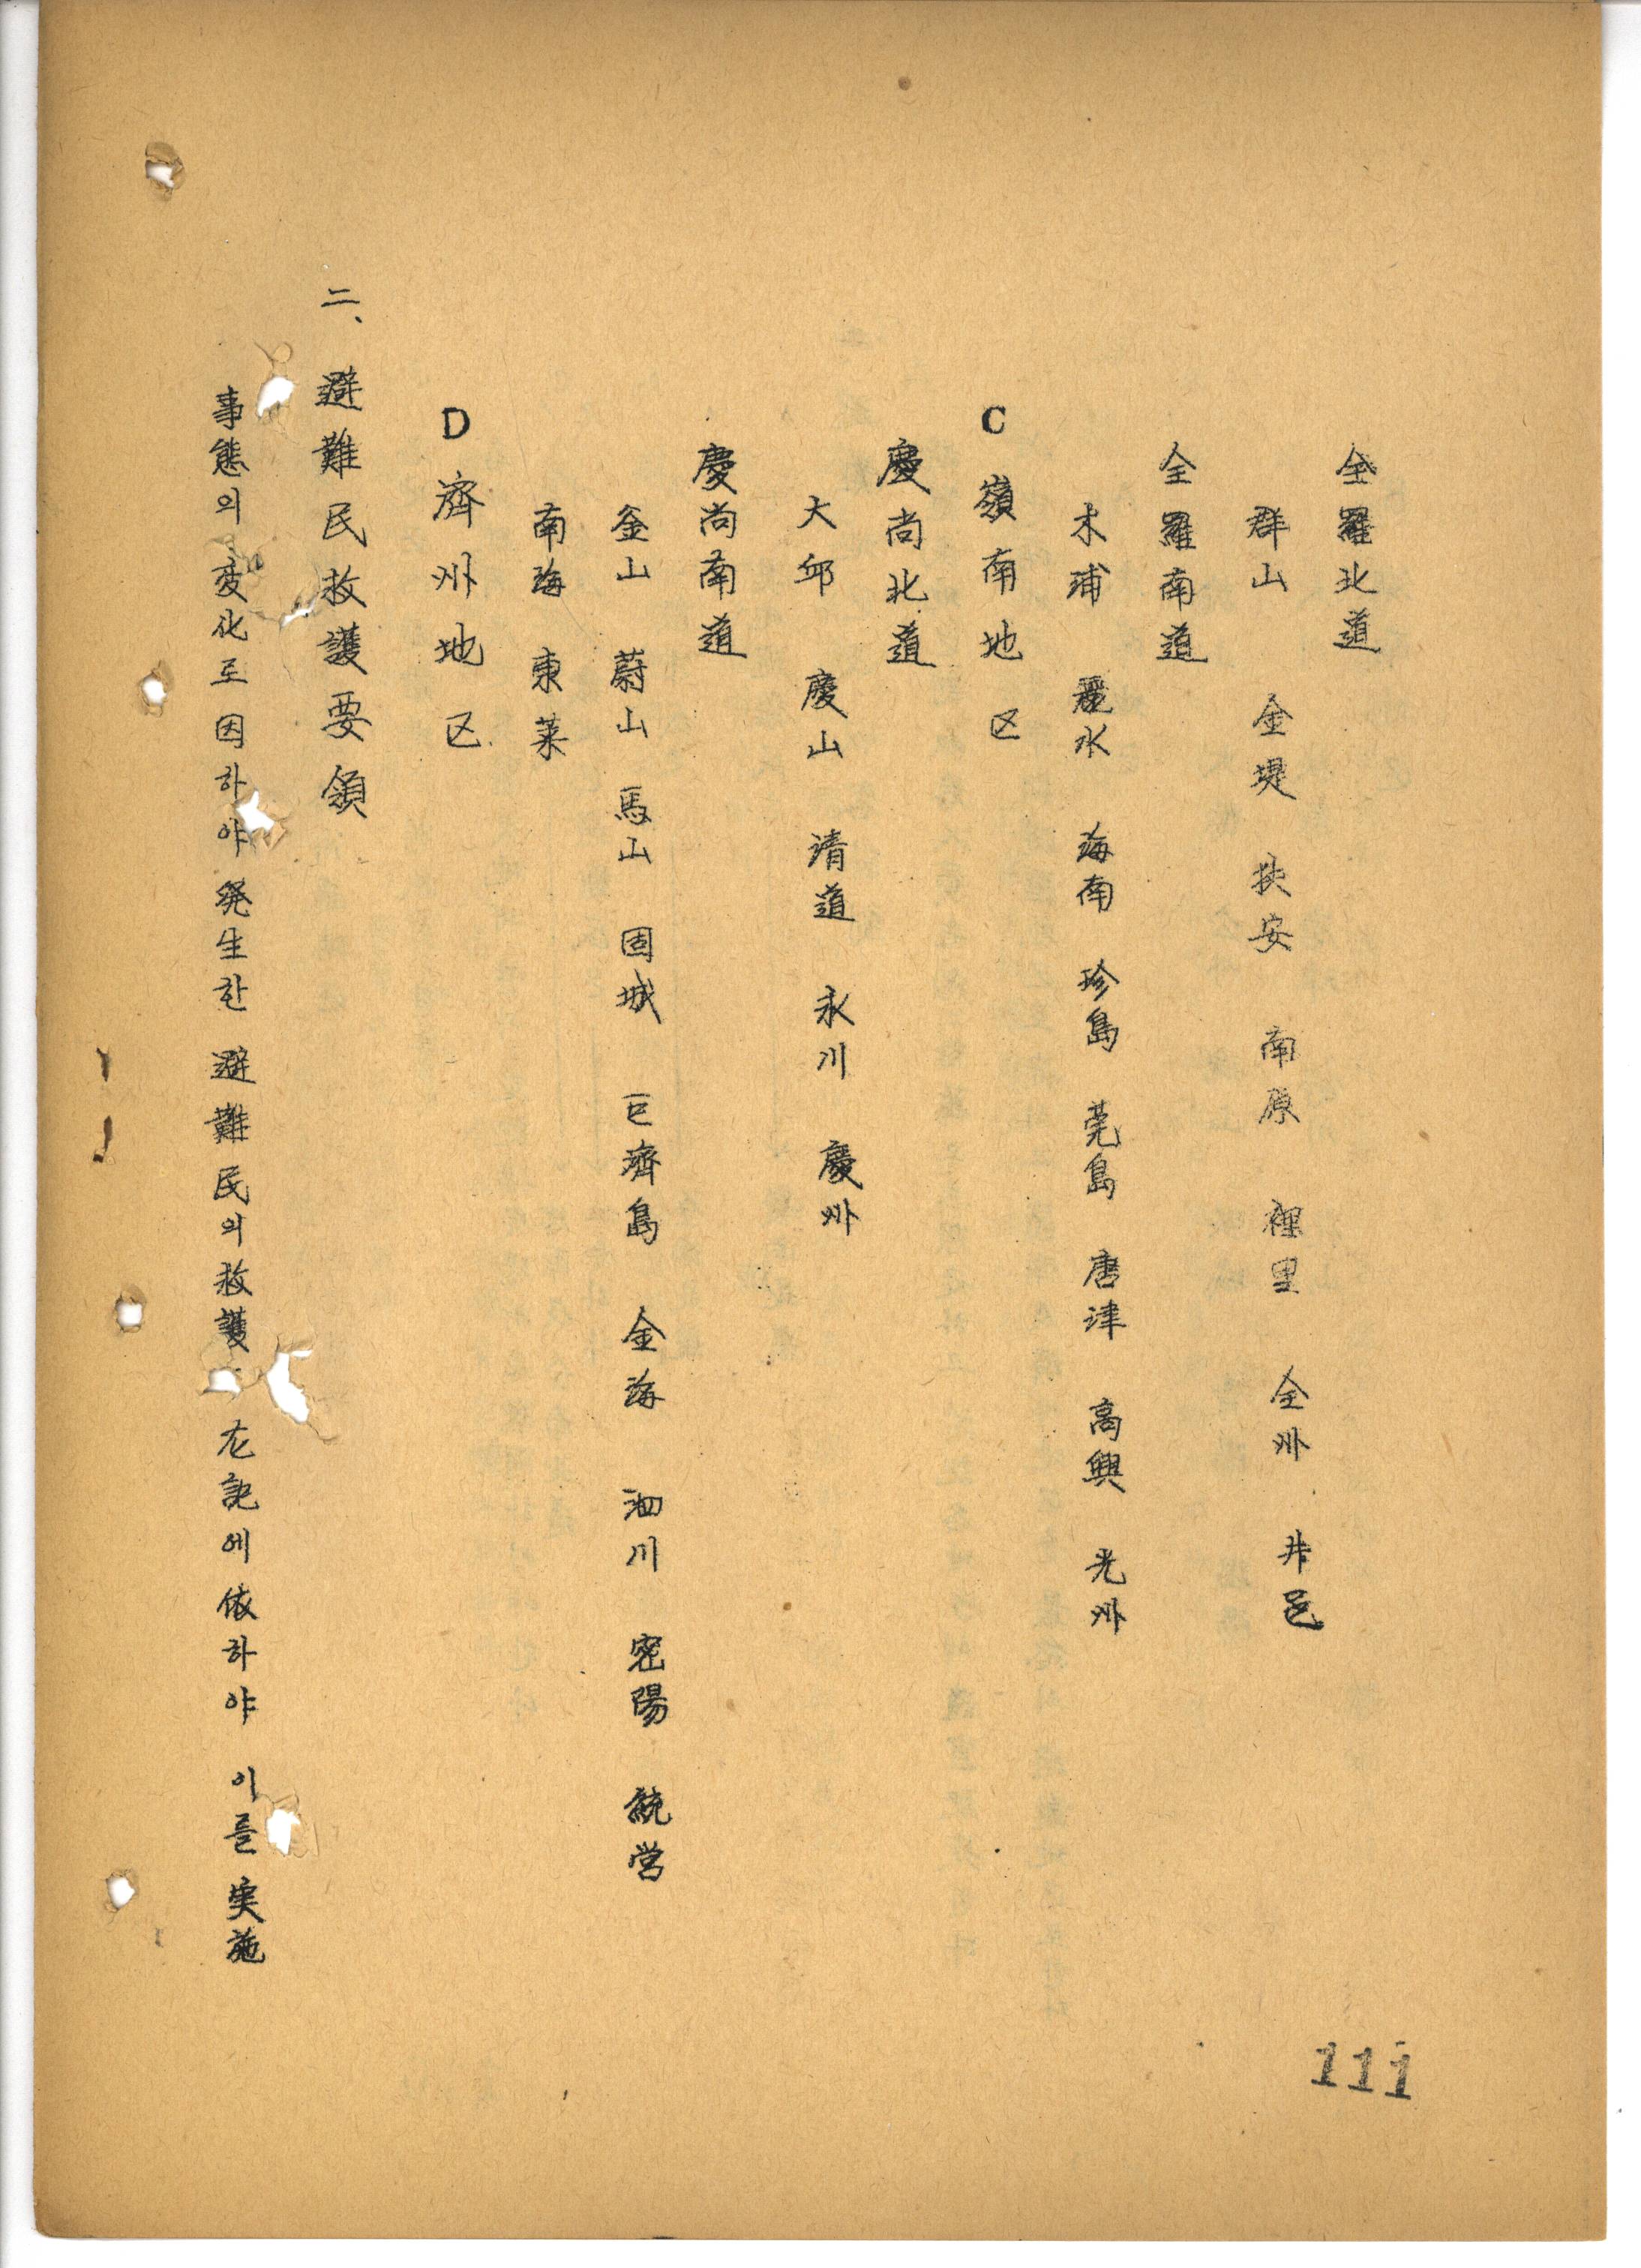 全羅北道
群山 金堤 扶安 南原 裡里 全州 井邑
全羅南道
木浦 麗水 海南 珍島 莞島 唐津 高興 光州
C 嶺南地区
慶尚北道
大邱 慶山 清道 永川 慶州
慶尚南道
釜山 蔚山 馬山 固城 巨濟島 金海 泗川 密陽 統営
南海 東萊
D 濟州地区
二、避難民救護要領
事態의 変化로 因하야 発生한 避難民의 救護 左記에 依하야 이를 実施
111